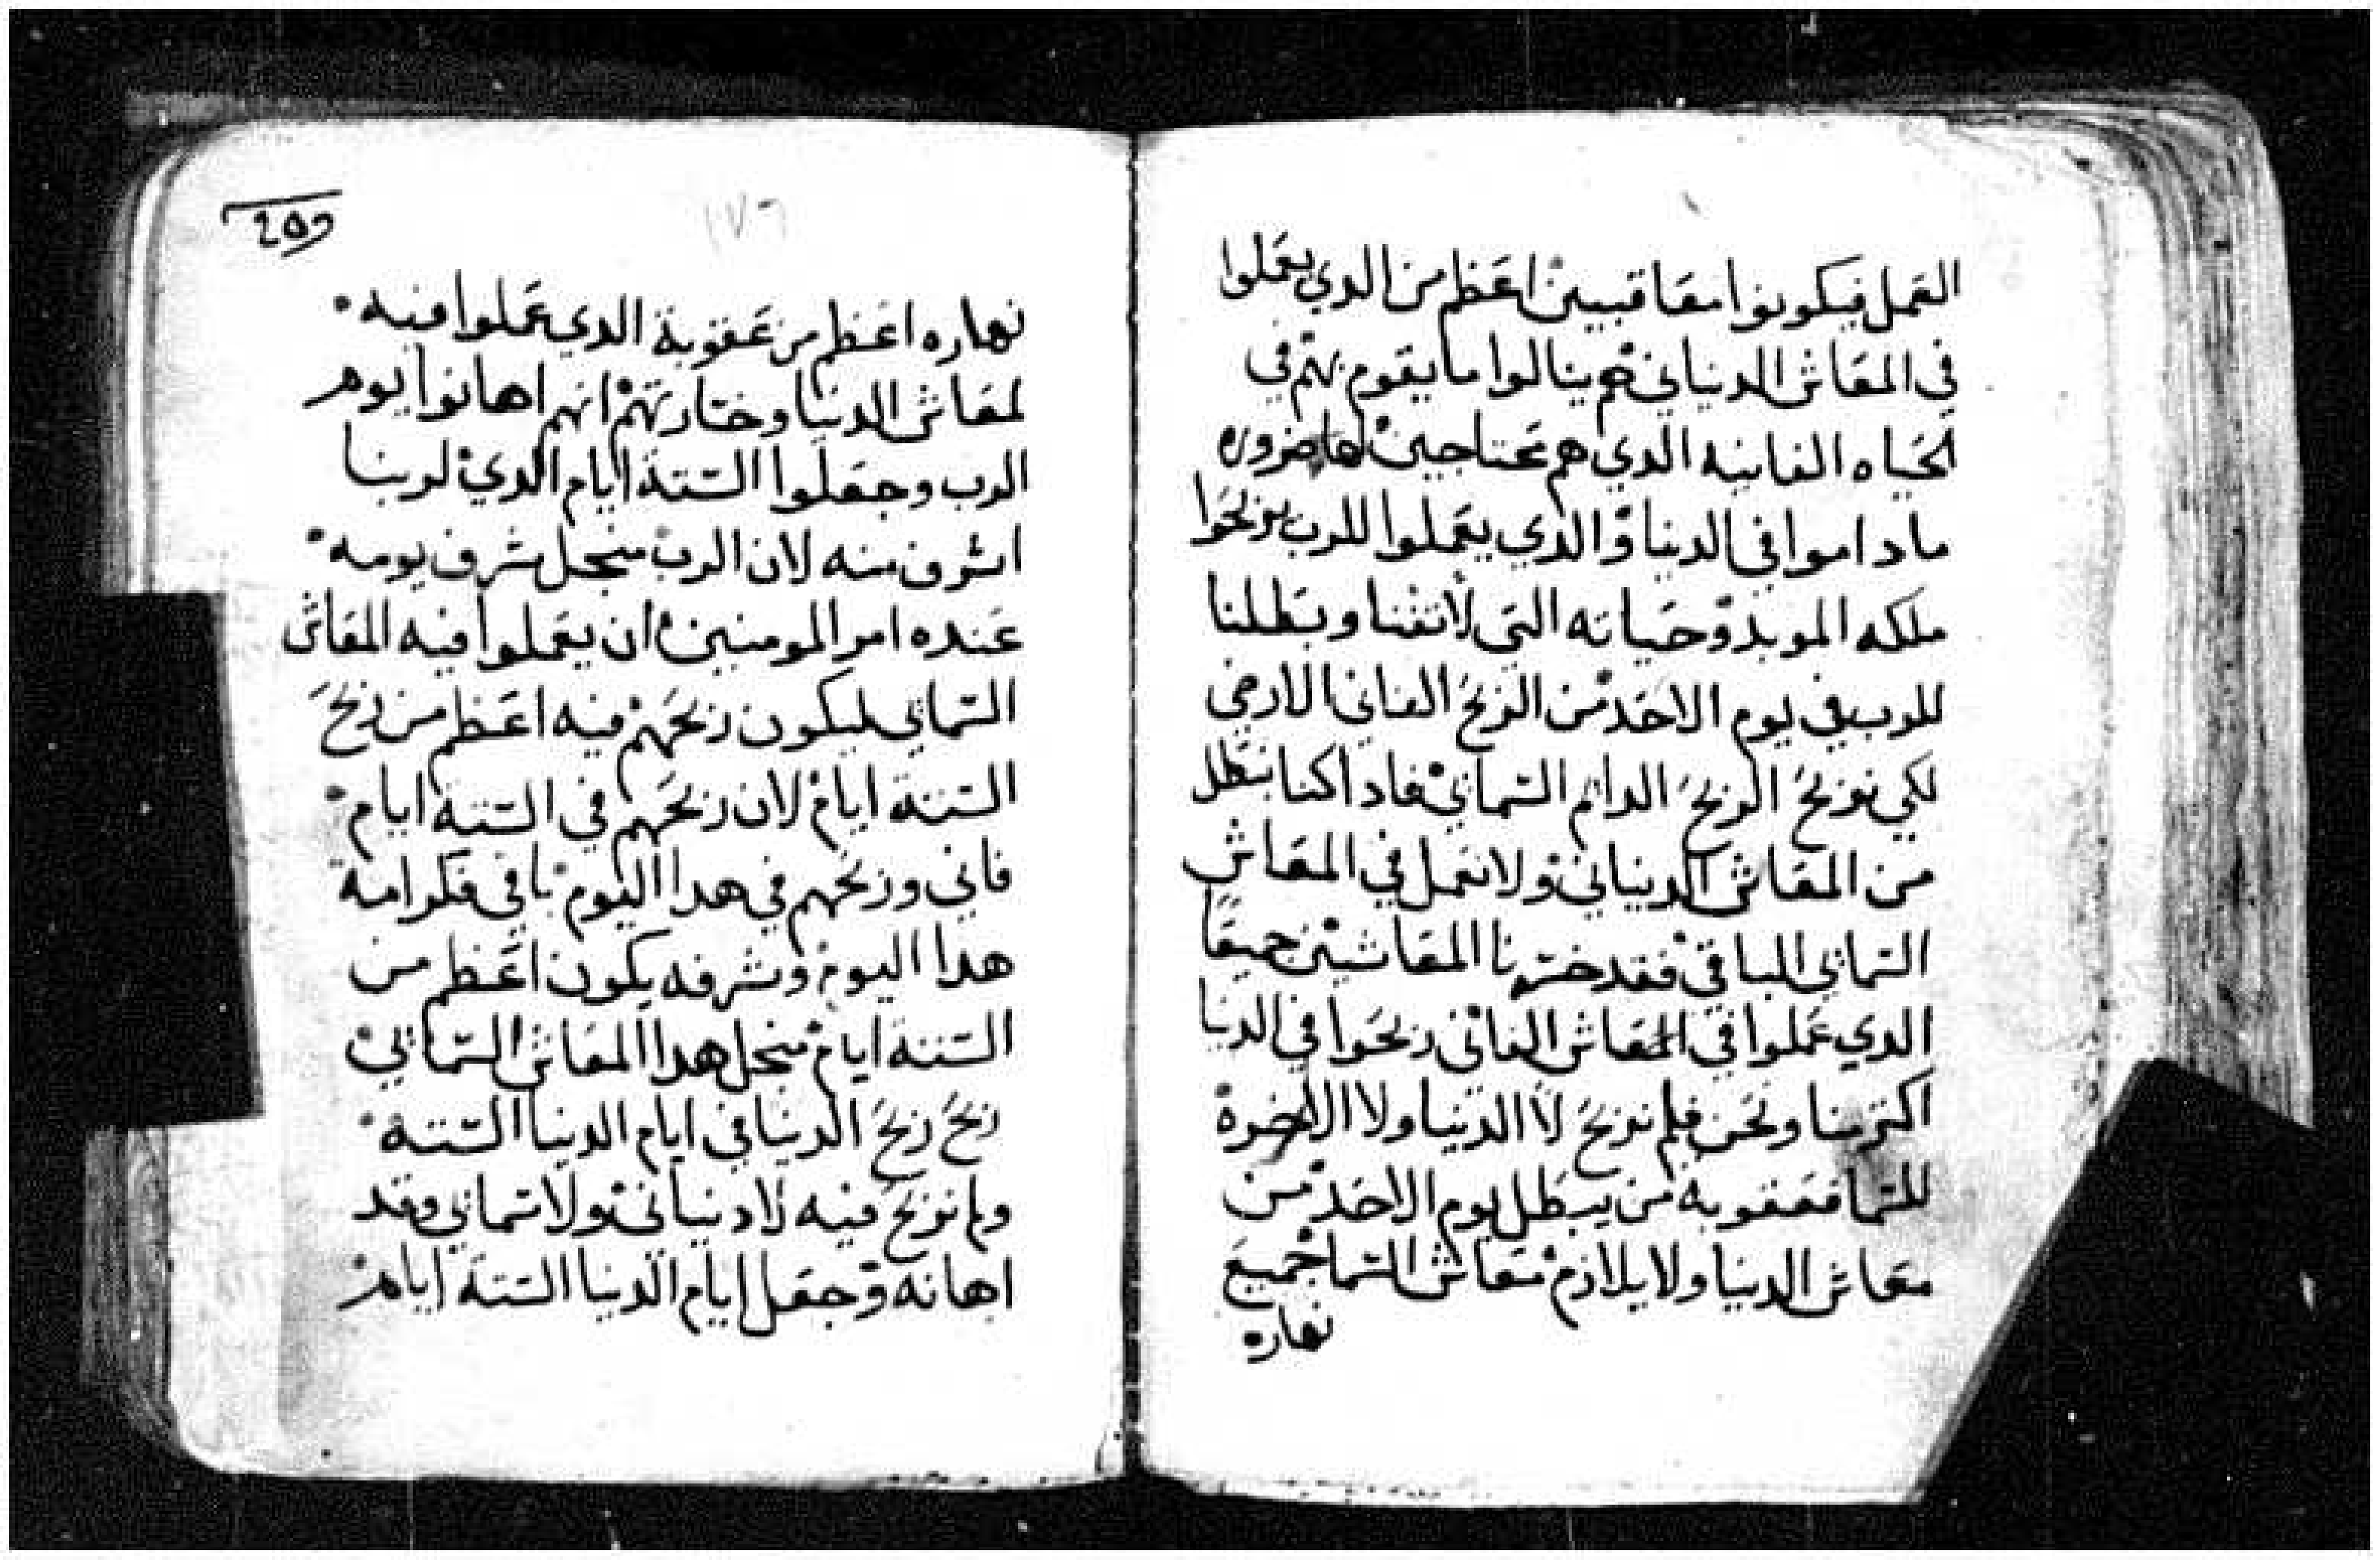 العمل فيكونوا معاقبين اعظم من الدي يعملوا
في المعاش الدنياني هم ينالوا ما يقوم بهم في
الحياه الفانيه الدي هم محتاجين لها ضروره
ماداموا في الدنيا والدي يعملوا للرب يربحوا
ملكه الموبد وحياته التي لا تفنا وبطلنا
للرب في يوم الاحد من الربح الفاني الارضي
لكي نربح الربح الدايم السماني فاداكنا نبطل
من المعاش الدنياني ولا نعمل في المعاش
السماني الباقي فقد خسرنا المعاشين جميعا
الدي عملوا في المعاش الفاني ربحوا في الدنيا
اكتر منا ونحن فلم نربح لا الدنيا ولا الاخرة
للسما فعقوبه من يبطل يوم الاحد من
معاش الدنيا ولا يلازم معاش السما جميع
نهاره
١٧٦
نهاره اعظم من عقوبة الدي عملوا فيه
لمعاش الدنيا وخسارتهم انهم اهانوا يوم
الرب وجعلوا الستة ايام الدي لربنا
اشرف منه لان الرب منجل شرف يومه
عنده امر المومنين ان يعملوا فيه المعاش
السماني ليكون ربحهم فيه اعظم من ربح
الستة ايام لان ربحهم في الستة ايام
فاني وربحهم في هدا اليوم باقي فكرامة
هدا اليوم وشرفه يكون اعظم من
الستة ايام منجل هدا المعاش السماني
ربح ربح الدنيا في ايام الدنيا الستة
ولم نربح فيه لا دنياني ولا سماني وقد
اهانه وجعل ايام الدنيا الستة ايام